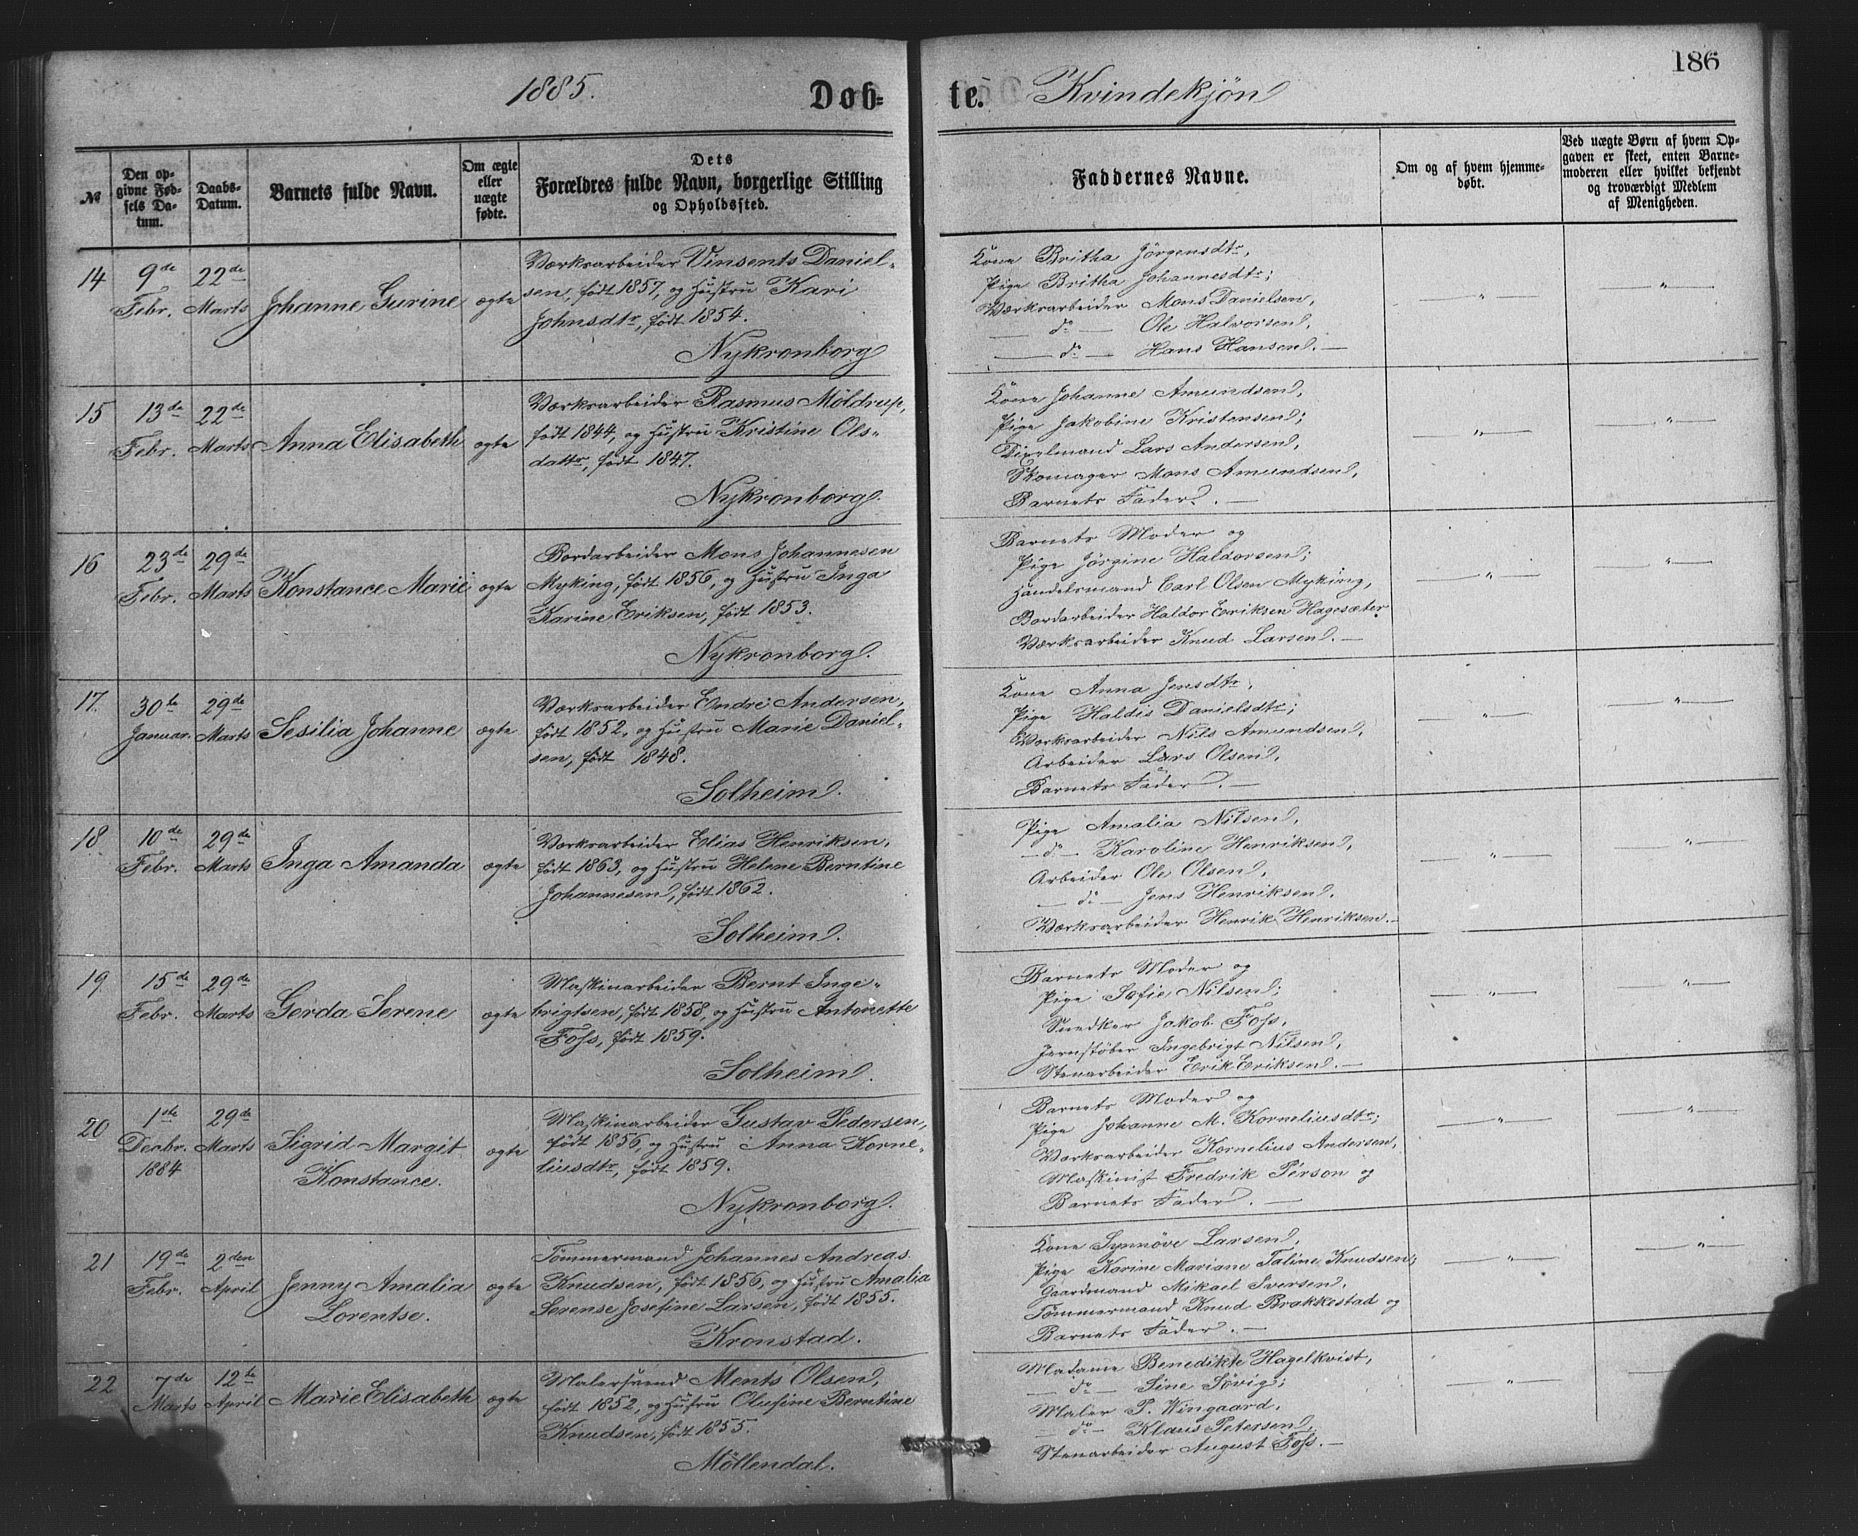 186
1885. Døb-te. Kvindekjøn
№
Den op-
givne Fød-
sels Da-
tum.
Daabs-
Datum.
Barnets fulde Navn.
Om ægte
eller
uægte
fødte.
Dets
Forældres fulde Navn, borgerlige Stilling
og Opholdssted.
Faddernes Navne.
Om og af hvem hjemme-
døbt.
Ved uægte Børn af hvem Op-
gaven er skeet, enten Barne-
moderen eller hvilket bekjendt
og troværdigt Medlem
af Menigheden.
14
9de
Febr.
22de
Marts
Johanne Gurine
ægte
Værksarbeider Vinsents Daniel-
sen, født 1857, og Hustru Kari
Johnsdtr, født 1854.
Nykronborg
Kone Britha Jörgensdtr,
Pige Britha Johannesdtr;
Værksarbeider Mons Danielsen,
— do — Ole Halvorsen,
— do — Hans Hansen. —
— " —
— " —
15
13de
Febr.
22de
Marts
Anna Elisabeth
ægte
Værksarbeider Rasmus Möldrup,
født 1844, og Hustru Kristine Ols-
datter, født 1847.
Nykronborg.
Kone Johanne Amundsen,
Pige Jakobine Kristensen;
Lars Andersen,
Skomager Mons Amundsen,
Barnets Fader. —
— " —
— " —
16
23de
Febr.
29de
Marts
Konstance Marie
ægte
Bordarbeider Mons Johannesen
Myking, født 1856, og Hustru Inga
Karine Eriksen, født 1853.
Nykronborg.
Barnets Moder og
Pige Jörgine Haldorsen;
Handelsmand Carl Olsen Myking,
Bordarbeider Haldor Eriksen Hagesæter
Værksarbeider Knud Larsen. —
— " —
— " —
17.
30te
Januar.
29de
Marts
Sesilia Johanne
ægte
Værksarbeider Endre Andersen,
født 1852, og Hustru Marie Daniel-
sen, født 1848.
Solheim.
Kone Anna Jensdtr,
Pige Haldis Danielsdtr;
Værksarbeider Nils Amundsen,
Arbeider Lars Olsen,
Barnets Fader. —
— " —
— " —
18
10de
Febr.
29de
Marts
Inga Amanda
ægte
Værksarbeider Elias Henriksen,
født 1863, og Hustru Helene Berntine
Johannesen, født 1862.
Solheim.
Pige Amalia Nilsen,
— do — Karoline Henriksen;
Arbeider Ole Olsen,
— do — Jens Henriksen,
Værksarbeider Henrik Henriksen. —
— " —
— " —
19
15de
Febr.
29de
Marts
Gerda Serene
ægte
Maskinarbeider Bernt Inge-
brigtsen, født 1858, og Hustru Antonette
Foss, født 1859.
Solheim.
Barnets Moder og
Pige Sofie Nilsen;
Snedker Jakob Foss,
Jernstøber Ingebrigt Nilsen,
Stenarbeider Erik Eriksen. —
— " —
— " —
20
1ste
Decbr.
1884
29de
Marts
Sigrid Margit
Konstance.
ægte
Maskinarbeider Gustav Pedersen,
født 1856, og Hustru Anna Korne-
liusdtr, født 1859.
Nykronborg.
Barnets Moder og
Pige Johanne M. Korneliusdtr;
Værksarbeider Kornelius Andersen,
Maskinist Fredrik Person og
Barnets Fader. —
— " —
— " —
21
19de
Febr.
2den
April
Jenny Amalia
Lorentse.
ægte
Tömmermand Johannes Andreas
Knudsen, født 1856, og Hustru Amalia
Serense Josefine Larsen, født 1855.
Kronstad.
Kone Synnöve Larsen,
Pige Karine Mariane Taline Knudsen;
Gaardmand Mikael Iversen,
Tömmermand Knud Brakkestad og
Barnets Fader. —
— " —
— " —
22
7de
Marts
12te
April
Marie Elisabeth
ægte
Malersvend Ments Olsen,
født 1852, og Hustru Olufine Berntine
Knudsen, født 1855.
Möllendal.
Madame Benedikte Hagelkvist,
— do — Sine Sövig;
Maler P. Wingaard,
— do — Klaus Petersen,
Stenarbeider August Foss. —
— " —